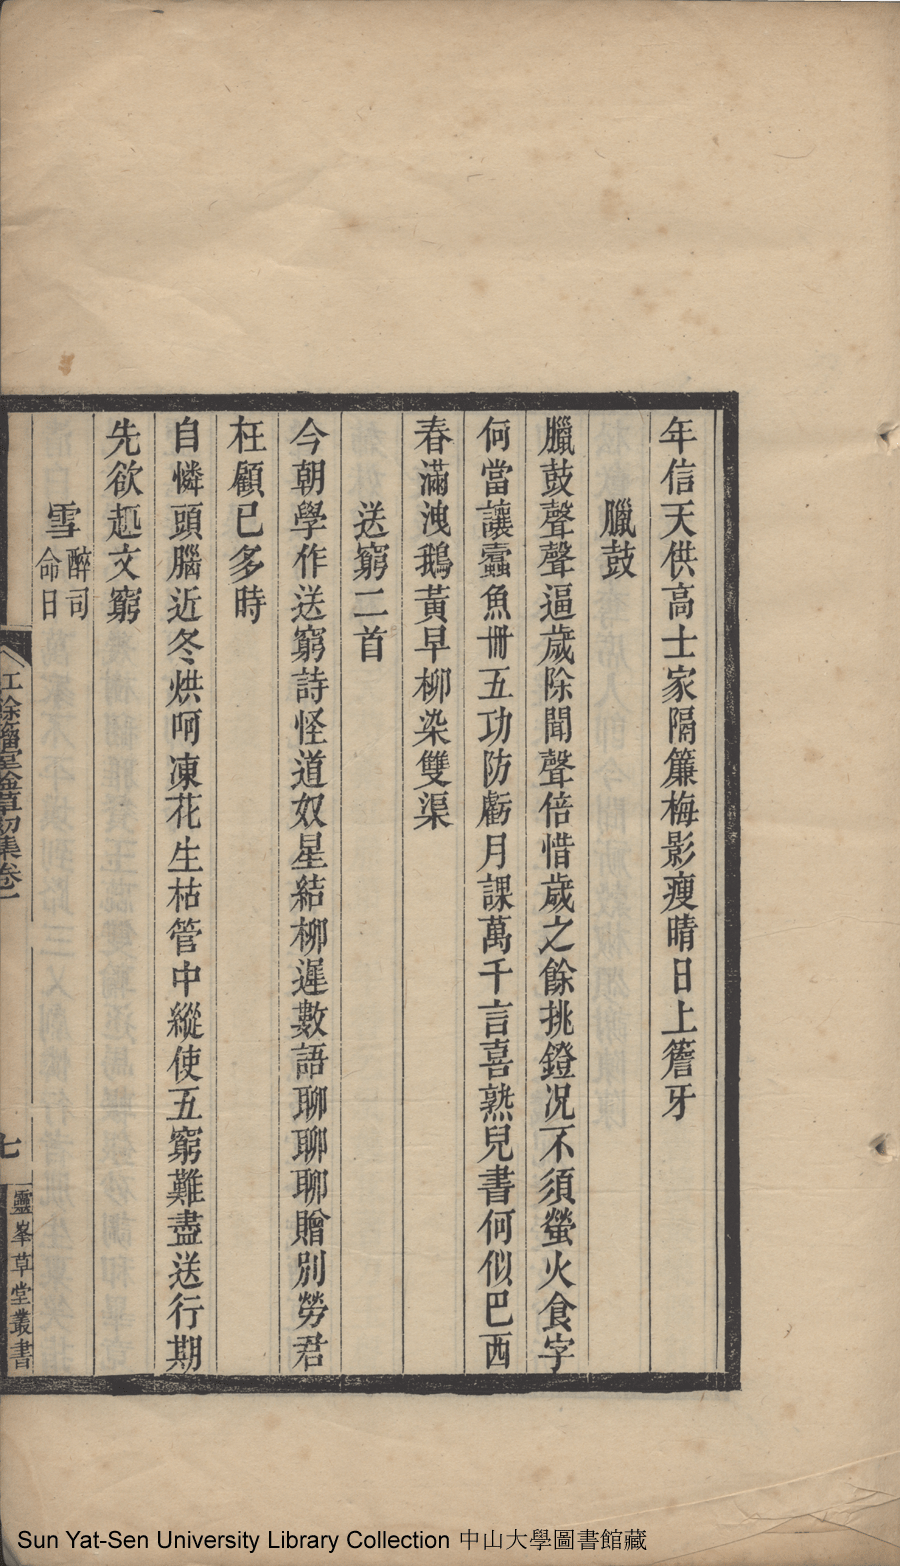 年信天供高士家隔簾梅影瘦晴日上簷牙
臘鼓
臘鼓聲聲逼歲除聞聲倍惜歲之餘挑鐙況不須螢火食字
何當讓蠹魚冊五功防虧月課萬千言喜熟兒書何似巴西
春滿洩鵝黃早柳染雙渠
送窮二首
今朝學作送窮詩怪道奴星結柳遲數語聊聊聊贈別勞君
枉顧已多時
自憐頭腦近冬烘呵凍花生枯管中縱使五窮難盡送行期
先欲趣文窮
雪醉司
命日
集卷一
七
靈峯草堂叢書
Sun Yat-Sen University Library Collection 中山大學圖書館藏